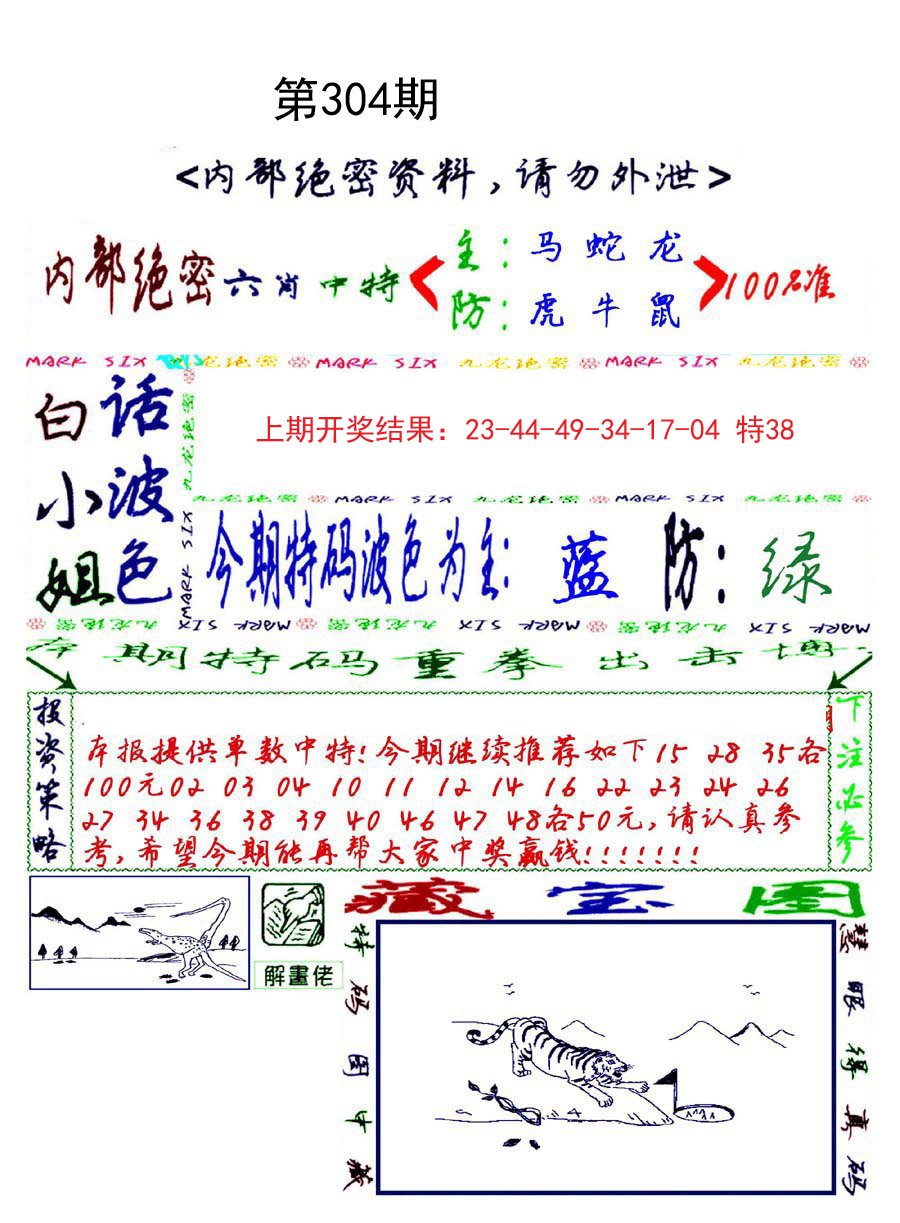 第304期
<内部绝密资料,请勿外泄>
内部绝密六肖中特
主:马 蛇 龙
防:虎 牛 鼠
100%准
MARK SIX 九龙绝密 MARK SIX 九龙绝密 MARK SIX 九龙绝密
白话
小波
姐色
九龙绝密
MARK SIX
上期开奖结果: 23-44-49-34-17-04 特38
九龙绝密 MARK SIX 九龙绝密 MARK SIX 九龙绝密
今期特码波色为主: 蓝 防: 绿
MARK SIX 九龙绝密 MARK SIX 九龙绝密 MARK SIX 九龙绝密 MARK SIX
本期特码重拳出击博
投资策略
本报提供单数中特!今期继续推荐如下15 28 35各
100元02 03 04 10 11 12 14 16 22 23 24 26
27 34 36 38 39 40 46 47 48各50元,请认真参
考,希望今期能再帮大家中奖赢钱!!!!!!!
下注必参
解畫佬
藏宝图
特码图中藏
慧眼得真码